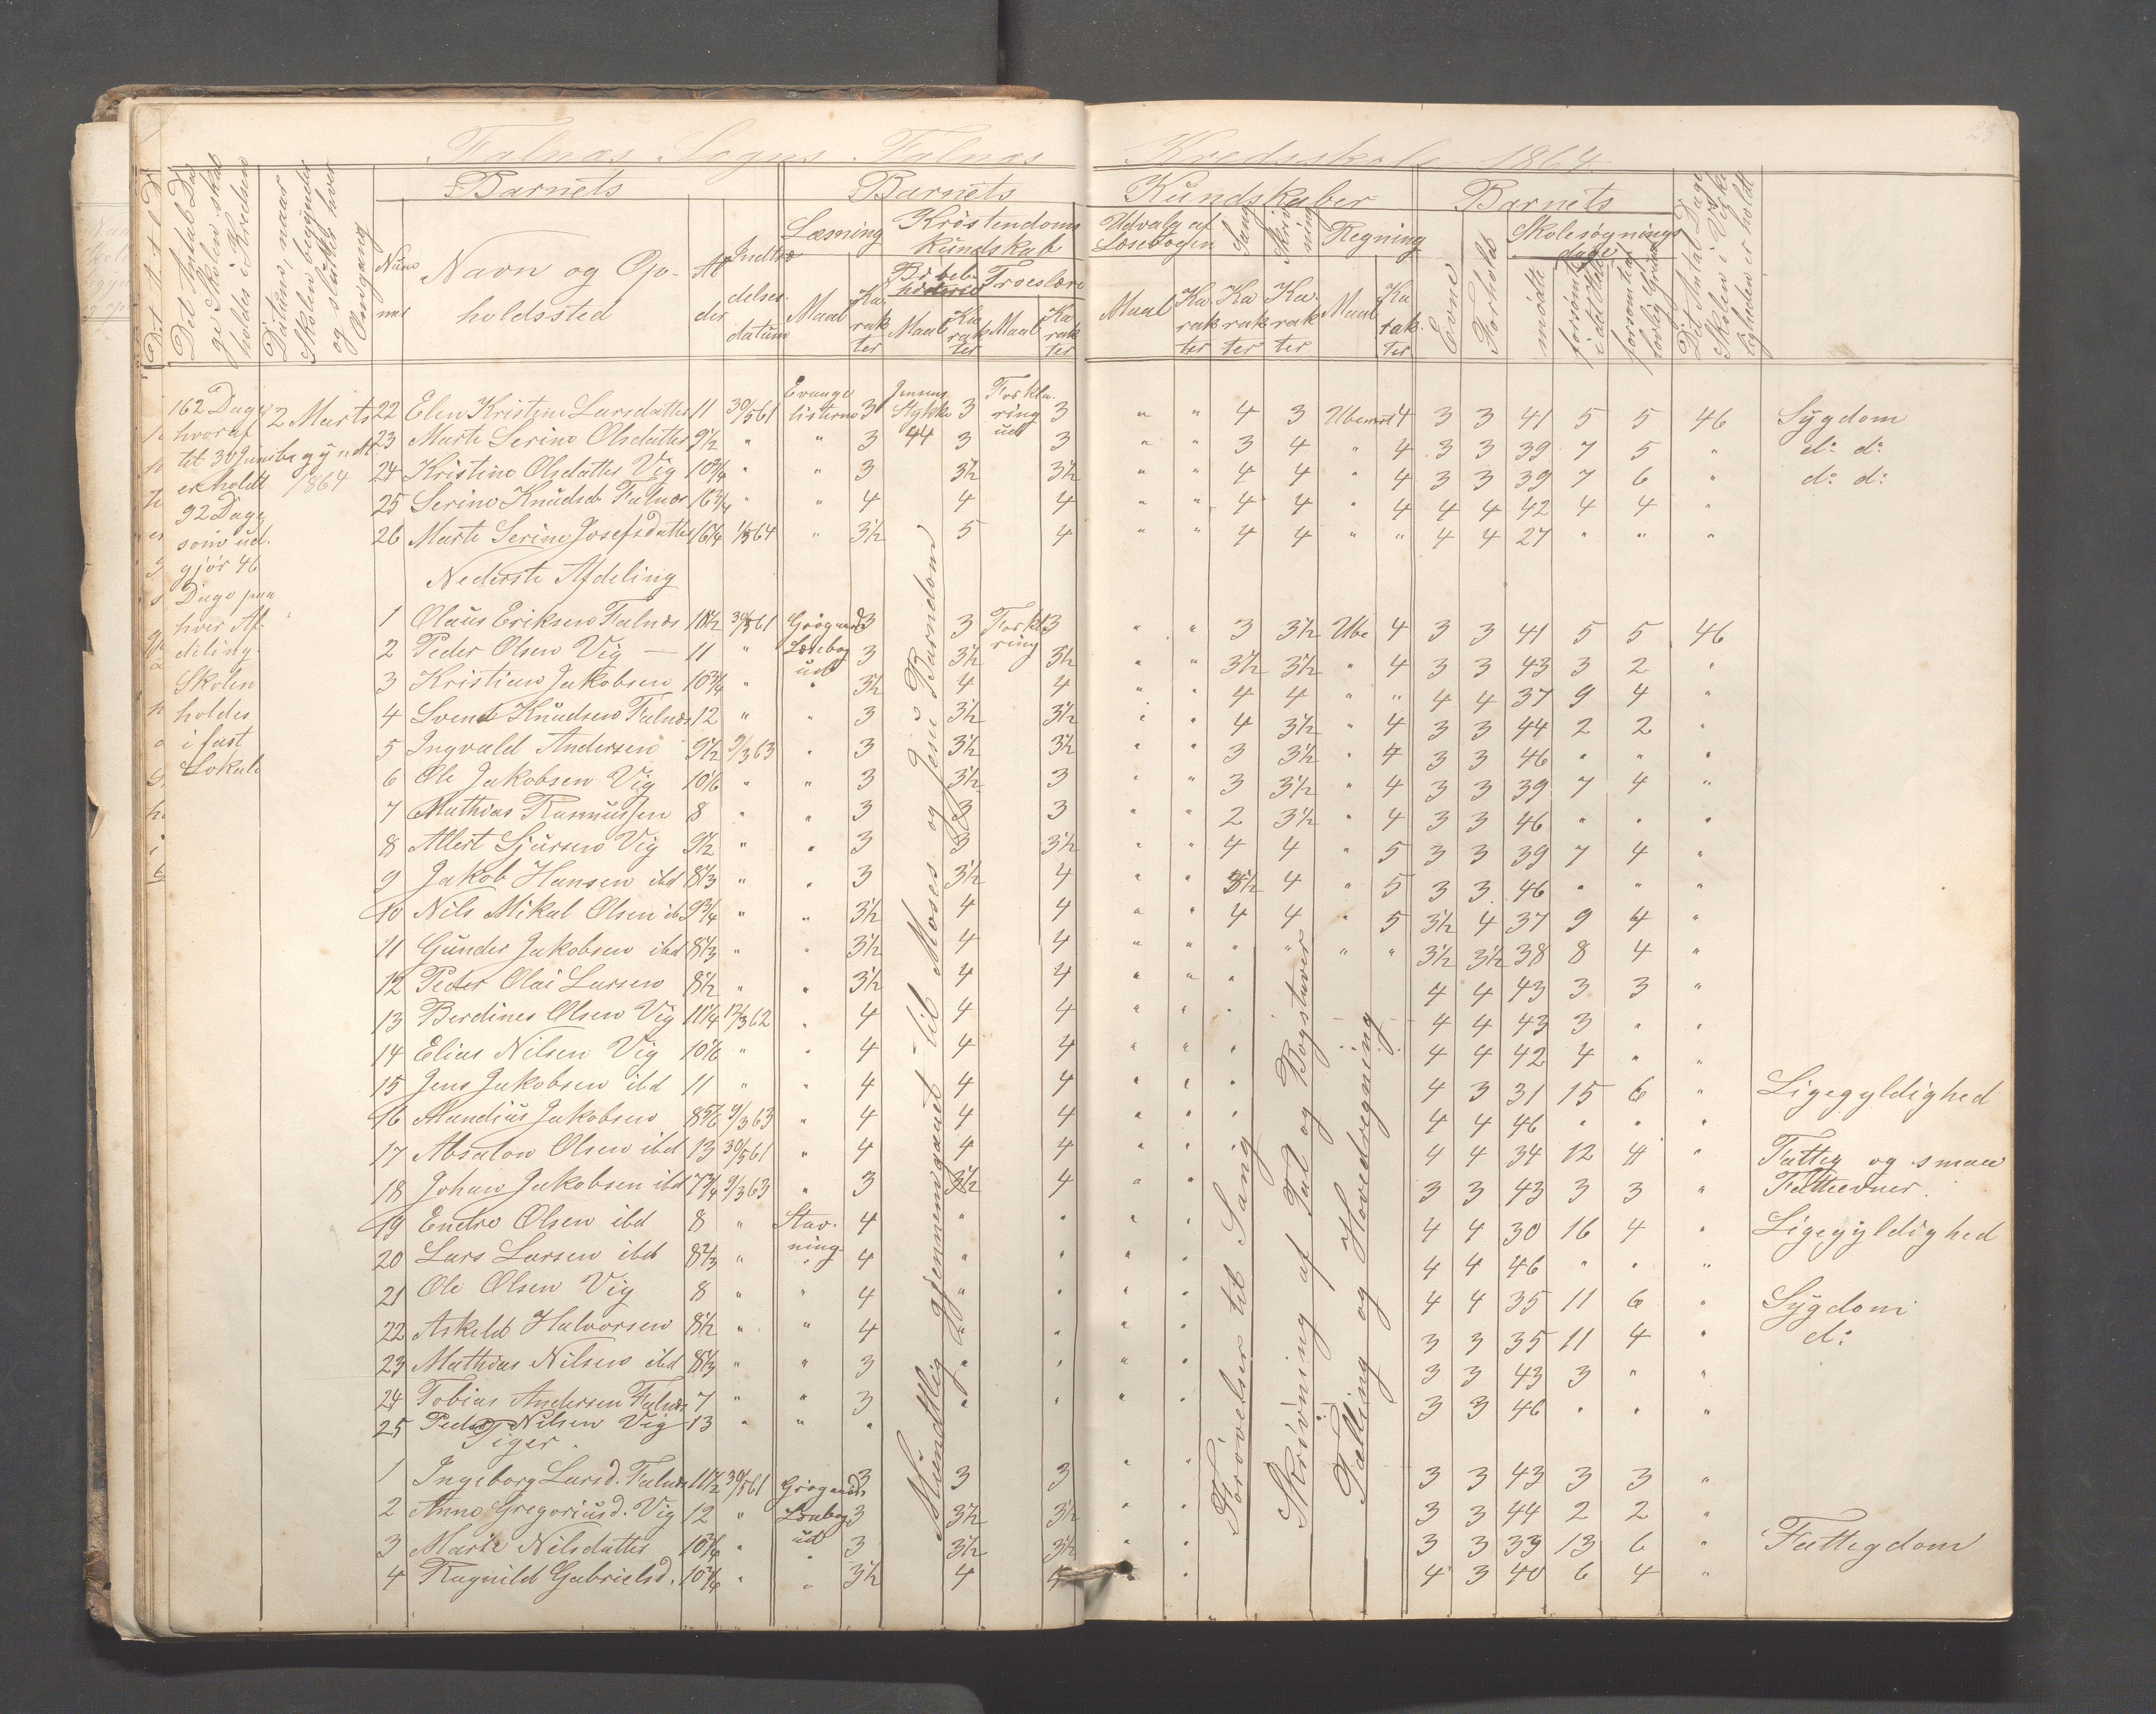 Falnæs Sogns Falnæs Kredsskole 1864
Det Antal Dage Skolen skal holdes i Kredsen
Datum, naar Skolen begynder og sluttes hver Omgang
Barnets
Num mer
Navn og Opholdssted
Al der
Indtræ delses datum
Barnets
Læsning
Maal
Ka rak ter
Kristendoms kundskab
Troeslære
Maal
Ka rak ter
Maal
Ka rak ter
Kundskaber
Udvalg af Læsebogen
Maal
Ka rak ter
Sang
Ka rak ter
Skriv ning
Ka rak ter
Regning
Maal
Ka rak ter
Barnets
Evne
Forhold
Skolesøgnings dage
mødte
forsømte i det Hele
forsømt af lovlig Grund
Det Antal Dage Skolen i Virkeligheden er holdt
162 Dage
hvoraf
til 30 Juni
er holdt
92 Dage
som ud-
gjør 46
Dage paa
hver Af-
deling.
Skolen
holdes
i fast
Lokale
2 Marts
begyndt
1864
22 Elen Kristine Larsdatter 11 30/5 61 Evangelisterne 3 3 Forklaring ud 3 " " 4 3 4 3 3 41 5 5 46 Sygdom
23 Marte Serine Olsdatter 9½ " " 3 44 3 3 " " 3 4 " 4 3 3 39 7 5 " do do
24 Kristine Olsdatter Vig 10¾ " " 3 3½ 3½ " " 4 4 " 4 3 3 39 7 6 " do do
25 Serine Knudsd Falnæs " " 4 4 4 " " 4 4 " 4 4 4 42 4 4 "
26 Marte Serine Josefsdatter " 3½ 5 4 " " 4 4 " " 4 4 27 " " "
Nederste Afdeling
1 Olaus Eriksen Falnæs 10½ 30/5 61 Grøgaards Læsebog ud 3 3 Forklaring 3 " " 3 3½ Ube 4 3 3 41 5 5 46
2 Peder Olsen Vig — 11 " 3 3½ 3½ " " 3½ 3½ " 4 3 3 43 3 2 "
3 Kristian Jakobsen 10¾ " " 3½ 4 4 " " 4 4 " " 4 4 37 9 4 "
4 Svend Knudsen Falnæs 12 " " 3 3½ 3½ " " 4 3½ " 4 3 3 44 2 2 "
5 Ingvald Andersen 9½ 9/3 63 " 3 3½ 3½ " " 3 3½ " 4 3 3 46 " " "
6 Ole Jakobsen Vig 10⅙ " " 3 3½ 3 " " 3 3½ " 4 3 3 39 7 4 "
7 Mathias Rasmussen 8 " " 3 3 3 " " 2 3½ " 4 3 3 46 " " "
8 Allert Sjursen Vig 9½ " " 3 3 3½ " " 4 4 " 5 3 3 39 7 4 "
9 Jakob Hansen ibd 8⅓ " " 3 3½ 4 " " 3½ 4 " 5 3 3 46 " " "
10 Nils Mikal Olsen ib 9¾ " " 3½ 4 4 " " 4 4 " 5 3½ 4 37 9 4 "
11 Gunder Jakobsen ibd 8⅓ " " 3½ 4 4 " " " " " " 3½ 3½ 38 8 4 "
12 Peder Olai Larsen 8½ " " 3½ 4 4 " " " 4 4 43 3 3 "
13 Berdines Olsen Vig 11¼ 12/3 62 " 4 4 4 " " " 4 4 43 3 " "
14 Elias Nilsen Vig 10⅙ " " 4 4 4 " " " 4 4 42 4 " "
15 Jens Jakobsen ibd 11 " " 4 4 4 " " " 4 3 31 15 6 " Ligegyldighed
16 Mandius Jakobsen 8⅚ 9/3 63 " 4 4 4 " " " 4 4 46 " " "
17 Absalon Olsen ibd 13 30/5 61 " 4 4 4 " " " 4 4 34 12 4 " Fattig og smaa
18 Johan Jakobsen ibd 7¾ 9/3 63 " 3 3½ 4 " " 3 3 43 3 3 " Fatteevner.
19 Endre Olsen ibd 8 " Stavning 4 " " " " 4 4 30 16 4 " Ligegyldighed
20 Lars Larsen ibd 8⅔ " " 4 " " " " 4 4 46 " " "
21 Ole Olsen Vig 8 " " 4 " " " " 4 4 35 11 6 " Sygdom
22 Askild Halvorsen 8½ " " 4 " " " " 3 3 35 11 4 " do
23 Mathias Nilsen ibd 8⅓ " " 3 " " " " 3 3 43 3 " "
24 Tobias Andersen Falnæs 7 " " 3 " " " " 3 3 46 " " "
25 Peder Nilsen Vig 13 " " "
Piger.
1 Ingeborg Larsd. Falnæs 11½ 30/5 61 Grøgaards Læsebog ud 3 3 3 " " 3 3 43 3 3 "
2 Anne Gregoriusd. Vig 12 " 3 3½ 3½ " " 3 3 44 2 2 "
3 Marte Nilsdatter " " 3 3½ 3½ " " 3 3 33 13 6 " Fattigdom
4 Ragnild Gabrielsd. " " 3½ 4 4 " 4 3 40 6 4 "
Mundtlig gjennemgaaet til Moses og Jesu Barndom
Forøvelser til Sang
Skrivning af Tal og Bogstaver
Tælling og Hovedregning